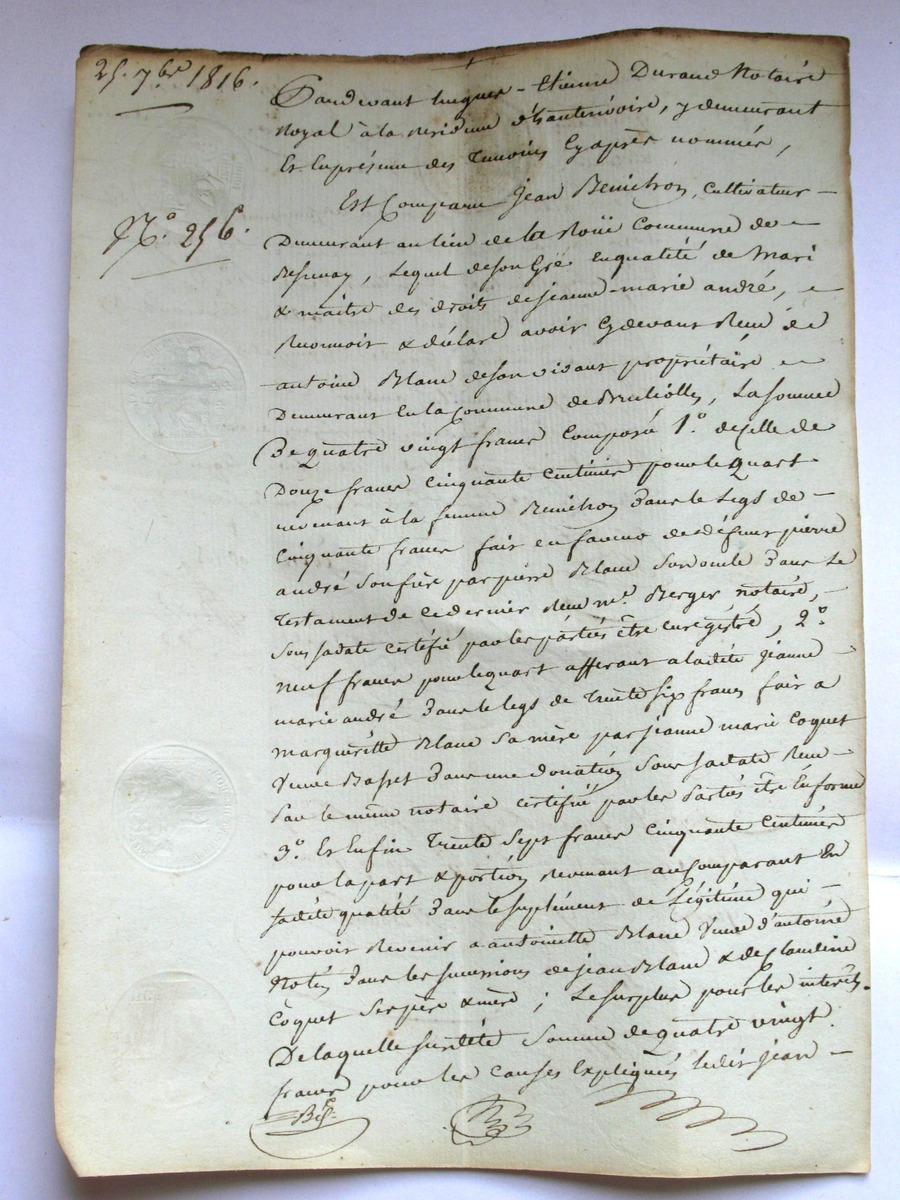 25. 7bre 1816.
N.o 256.
Pardevant hugues-Etienne Durand Notaire
Royal à la residence d'hauterivoire, y demeurant
Et En présence des Témoins Cy après nommés,
Est Comparu Jean Benichon, cultivateur
Demeurant au lieu de la Roüe Commune de
lequel de son Gré En qualité de Mari
& maître des droits de jeanne-marie andré,
Reconnoit & déclare avoir Cy devant Recu de
antoine Blanc de son vivant propriétaire
Demeurant En la Commune de Brulliolles, La somme
De quatre vingt francs Composée 1.o de Celle de
Douze francs Cinquante Centimes pour le quart
revenant à la femme Benichon Dans le Legs de
Cinquante francs fait en faveur de défunt pierre
andré son frère par pierre Blanc Son oncle Dans Le
Testament de ce dernier Recu m.e Berger notaire,
Sous sa date certifié par les parties être Enregistré, 2.o
neuf francs pour le quart afferant a ladite Jeanne
marie andré Dans le legs de Trente six francs fait a
marguerite Blanc Sa mère par jeanne marie Coquet
Veuve Basset Dans une donation Sous sa date Recue
Par le même notaire certifiée par les Parties être En forme
3.o Et Enfin Trente Sept francs Cinquante Centimes
pour la part & portion Revenant au Comparant En
sadite qualité Dans le suplément de Légitime qui
pouvoit Revenir a antoinette Blanc Veuve d'antoine
Dans les successions de jean Blanc & de Claudine
Coquet Ses père & mère ; Le surplus pour les interêts
De laquelle susdite Somme de quatre vingt
francs pour les Causes Expliquées ledit jean